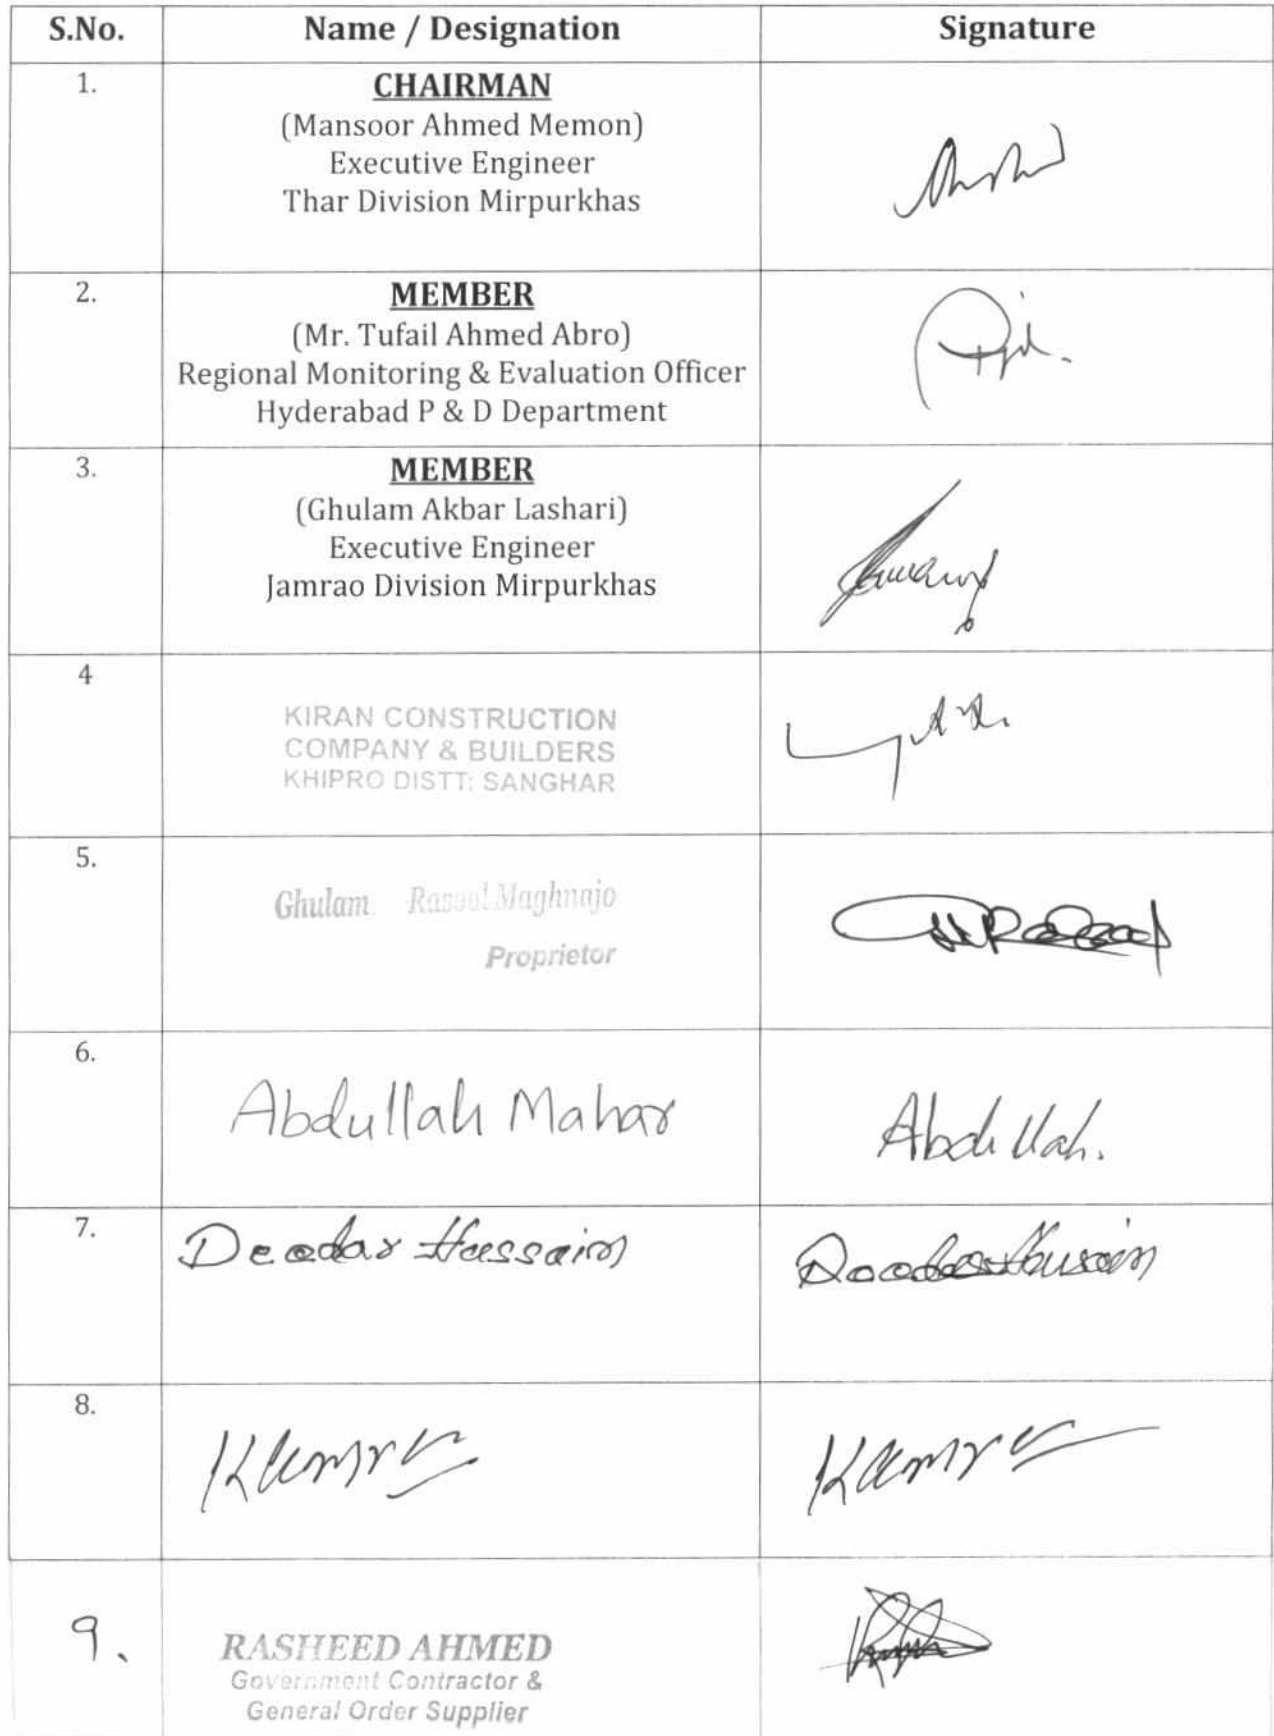 S.No. Name / Designation Signature
1. CHAIRMAN
(Mansoor Ahmed Memon)
Executive Engineer
Thar Division Mirpurkhas
2. MEMBER
(Mr. Tufail Ahmed Abro)
Regional Monitoring & Evaluation Officer
Hyderabad P & D Department
3. MEMBER
(Ghulam Akbar Lashari)
Executive Engineer
Jamrao Division Mirpurkhas
4
KIRAN CONSTRUCTION
COMPANY & BUILDERS
KHIPRO DISTT: SANGHAR
5.
Ghulam Rasool Maghnajo
Proprietor
6.
Abdullah Mahar Abdullah.
7.
Deedar Hussain
8.
9.
RASHEED AHMED
Government Contractor &
General Order Supplier